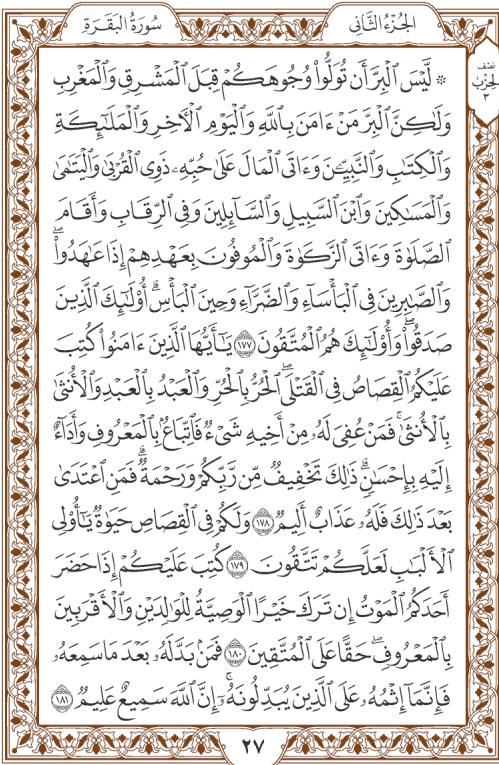 الجُزْءُ الثَّانِي
سُورَةُ البَقَرَةِ
نصف
الحزب
٣
۞ لَّيْسَ ٱلْبِرَّ أَن تُوَلُّوا۟ وُجُوهَكُمْ قِبَلَ ٱلْمَشْرِقِ وَٱلْمَغْرِبِ
وَلَـٰكِنَّ ٱلْبِرَّ مَنْ ءَامَنَ بِٱللَّهِ وَٱلْيَوْمِ ٱلْـَٔاخِرِ وَٱلْمَلَـٰٓئِكَةِ
وَٱلْكِتَـٰبِ وَٱلنَّبِيِّـۧنَ وَءَاتَى ٱلْمَالَ عَلَىٰ حُبِّهِۦ ذَوِى ٱلْقُرْبَىٰ وَٱلْيَتَـٰمَىٰ
وَٱلْمَسَـٰكِينَ وَٱبْنَ ٱلسَّبِيلِ وَٱلسَّآئِلِينَ وَفِى ٱلرِّقَابِ وَأَقَامَ
ٱلصَّلَوٰةَ وَءَاتَى ٱلزَّكَوٰةَ وَٱلْمُوفُونَ بِعَهْدِهِمْ إِذَا عَـٰهَدُوا۟ ۖ
وَٱلصَّـٰبِرِينَ فِى ٱلْبَأْسَآءِ وَٱلضَّرَّآءِ وَحِينَ ٱلْبَأْسِ ۗ أُو۟لَـٰٓئِكَ ٱلَّذِينَ
صَدَقُوا۟ ۖ وَأُو۟لَـٰٓئِكَ هُمُ ٱلْمُتَّقُونَ ١٧٧ يَـٰٓأَيُّهَا ٱلَّذِينَ ءَامَنُوا۟ كُتِبَ
عَلَيْكُمُ ٱلْقِصَاصُ فِى ٱلْقَتْلَى ۖ ٱلْحُرُّ بِٱلْحُرِّ وَٱلْعَبْدُ بِٱلْعَبْدِ وَٱلْأُنثَىٰ
بِٱلْأُنثَىٰ ۚ فَمَنْ عُفِىَ لَهُۥ مِنْ أَخِيهِ شَىْءٌ فَٱتِّبَاعٌۢ بِٱلْمَعْرُوفِ وَأَدَآءٌ
إِلَيْهِ بِإِحْسَـٰنٍ ۗ ذَٰلِكَ تَخْفِيفٌ مِّن رَّبِّكُمْ وَرَحْمَةٌ ۗ فَمَنِ ٱعْتَدَىٰ
بَعْدَ ذَٰلِكَ فَلَهُۥ عَذَابٌ أَلِيمٌ ١٧٨ وَلَكُمْ فِى ٱلْقِصَاصِ حَيَوٰةٌ يَـٰٓأُو۟لِى
ٱلْأَلْبَـٰبِ لَعَلَّكُمْ تَتَّقُونَ ١٧٩ كُتِبَ عَلَيْكُمْ إِذَا حَضَرَ
أَحَدَكُمُ ٱلْمَوْتُ إِن تَرَكَ خَيْرًا ٱلْوَصِيَّةُ لِلْوَٰلِدَيْنِ وَٱلْأَقْرَبِينَ
بِٱلْمَعْرُوفِ ۖ حَقًّا عَلَى ٱلْمُتَّقِينَ ١٨٠ فَمَنۢ بَدَّلَهُۥ بَعْدَ مَا سَمِعَهُۥ
فَإِنَّمَآ إِثْمُهُۥ عَلَى ٱلَّذِينَ يُبَدِّلُونَهُۥٓ ۚ إِنَّ ٱللَّهَ سَمِيعٌ عَلِيمٌ ١٨١
٢٧